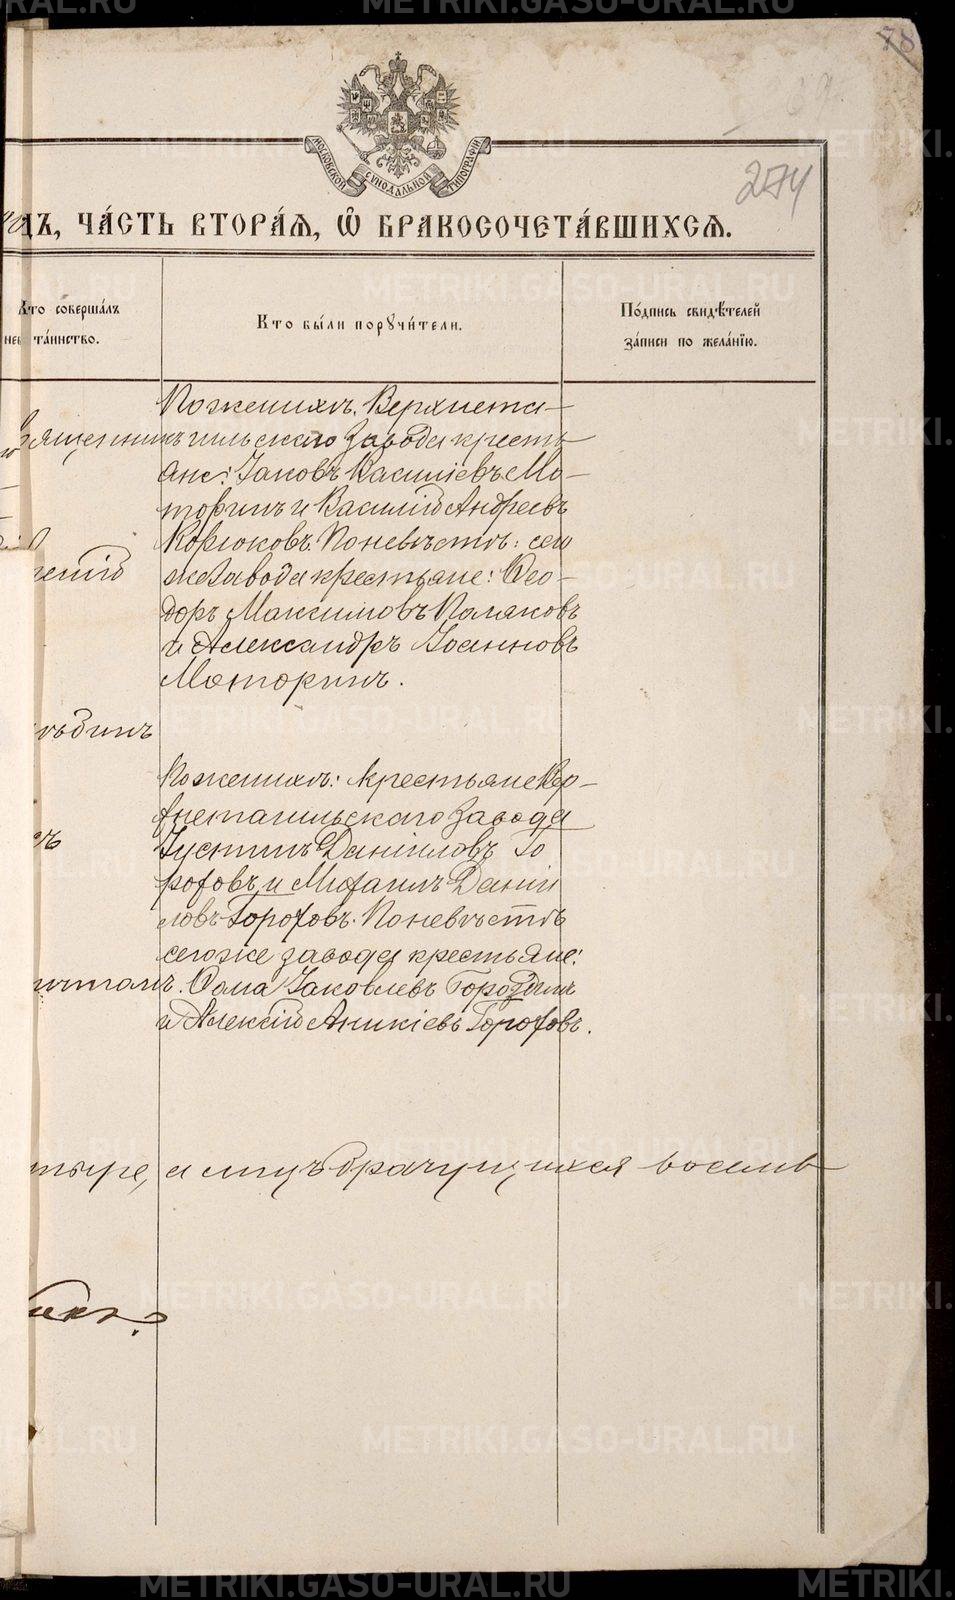 78
274
МОСКОВСКОЙ СУНОДАЛЬНОЙ ТИПОГРАФІИ
дъ, ча́сть втора́я, ѡ҆ бракосочета́вшихся.
Кто соверша́лъ
та́инство.
Кто бы́ли порꙋчи́тели.
По́дпись свидѣ́телей
за́писи по жела́нїю.
По женихѣ: Верхнета-
гильскаго завода кресть
яне: Іаковъ Василіевъ Мо-
торинъ и Василій Андреевъ
Корюковъ. По невѣстѣ: сего
же завода крестьяне: Ѳео-
доръ Максимовъ Поляковъ
и Александръ Іоанновъ
Моторинъ.
По женихѣ: крестьяне Вер-
хнетагильскаго завода
Іустинъ Даніиловъ Го
роховъ и Михаилъ Даніи
ловъ Гороховъ. По невѣстѣ
сего же завода крестьяне:
Ѳома Іаковлевъ Городилъ
и Алексій Аникіевъ Гороховъ.
тыре, а лицъ брачущихся восемь
METRIKI.GASO-URAL.RU